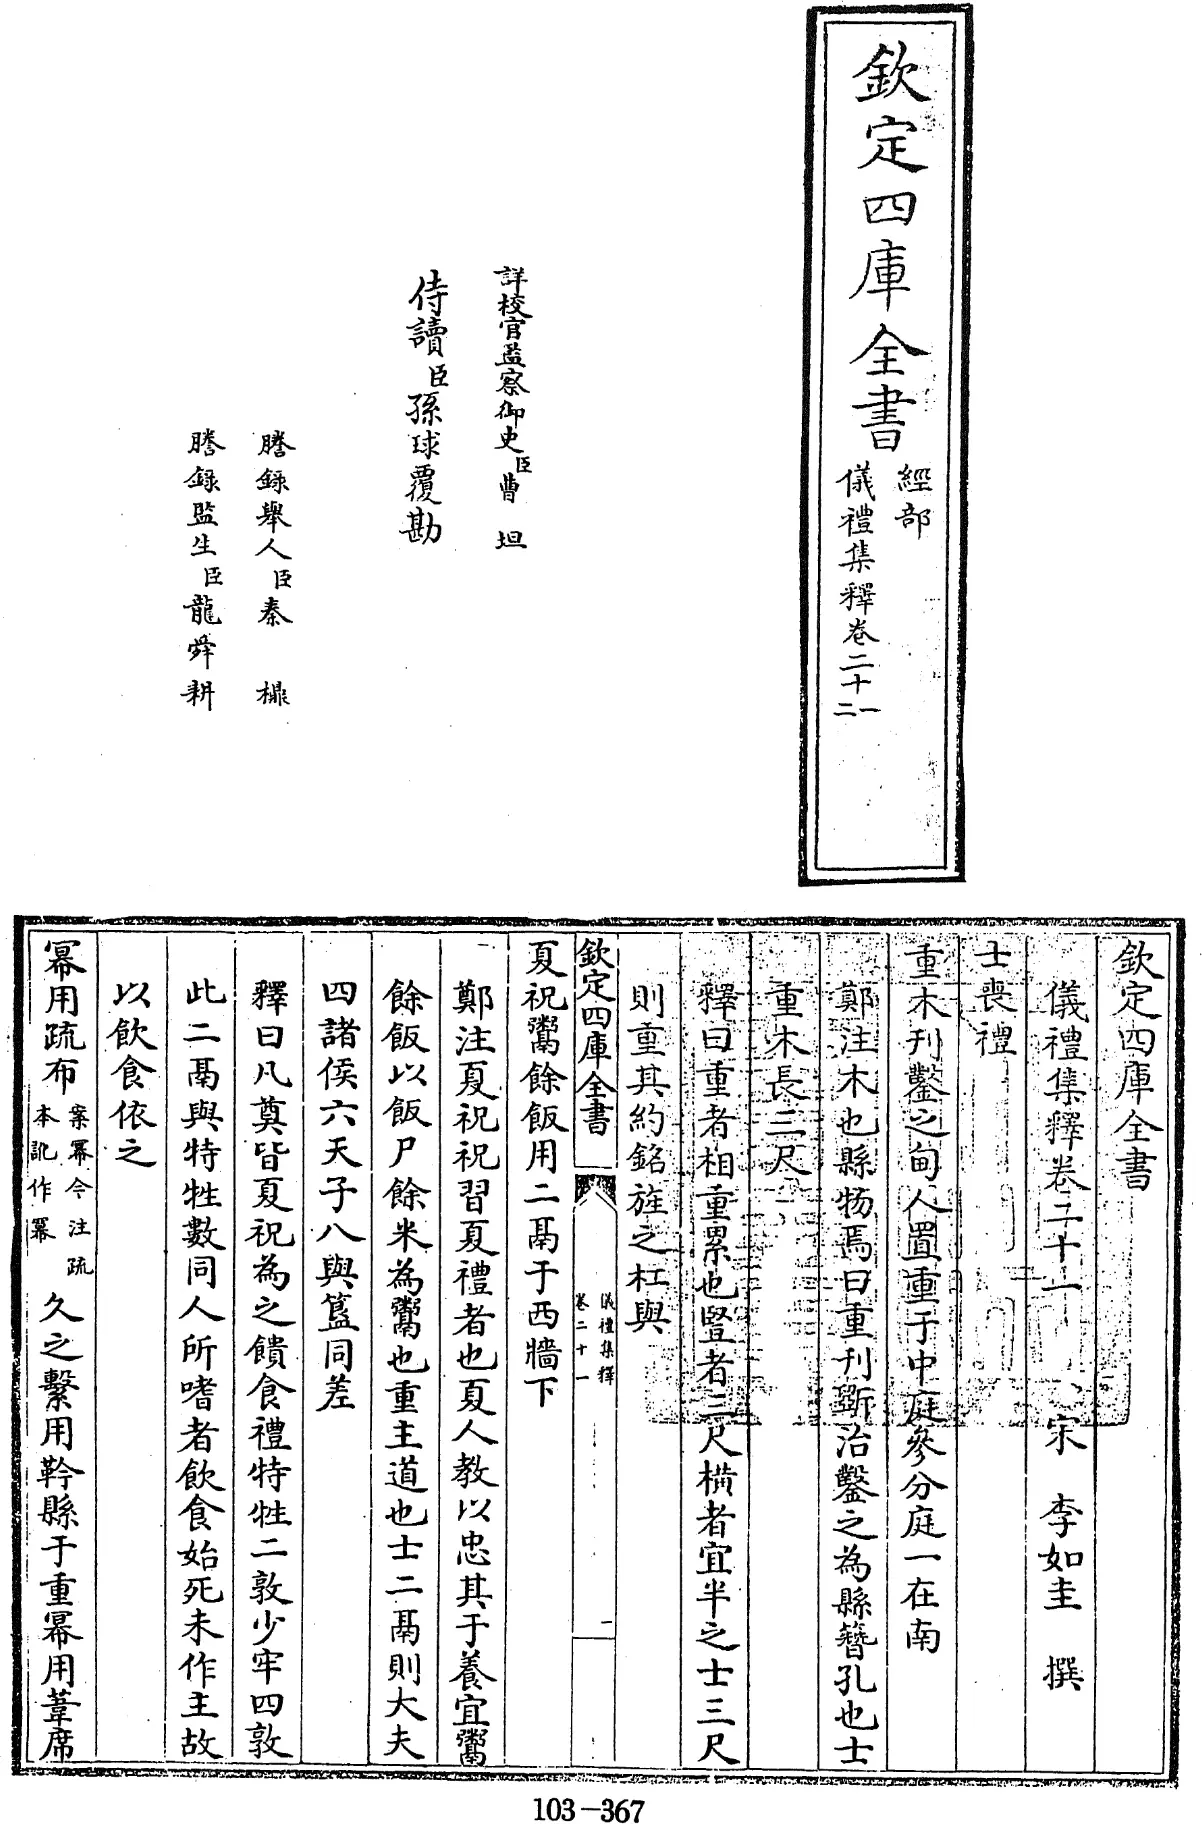 欽定四庫全書
經部
儀禮集釋卷二十一二
詳校官監察御史臣曹坦
侍讀臣孫球覆勘
謄錄舉人臣秦樶
謄錄監生臣龍舜耕
欽定四庫全書
儀禮集釋卷二十一 宋 李如圭 撰
士喪禮
重木刊鑿之甸人置重于中庭參分庭一在南
鄭注木也縣物焉曰重刊斲治鑿之為縣簪孔也士
重木長三尺
釋曰重者相重累也豎者三尺橫者宜半之士三尺
則重其約銘旌之杠與
欽定四庫全書
儀禮集釋
卷二十一
一
夏祝鬻餘飯用二鬲于西牆下
鄭注夏祝祝習夏禮者也夏人教以忠其于養宜鬻
餘飯以飯尸餘米為鬻也重主道也士二鬲則大夫
四諸侯六天子八與簋同差
釋曰凡奠皆夏祝為之饋食禮特牲二敦少牢四敦
此二鬲與特牲數同人所嗜者飲食始死未作主故
以飲食依之
冪用疏布案冪今注疏本訛作幂久之繫用靲縣于重冪用葦席
103-367